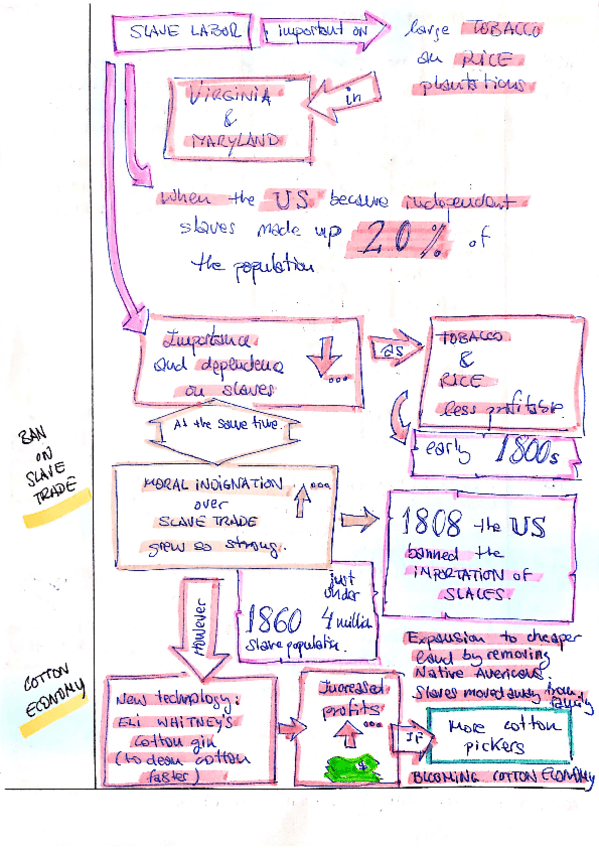 SLAVE LABOR important on large TOBACCO
on RICE
plantations
in
VIRGINIA
&
MARYLAND
When the US became independent
slaves made up 20% of
the population
Importance
and dependence
on slaves
...
as
TOBACCO
&
RICE
less profitable.
early 1800s
At the same time.
BAN
ON
SLAVE
TRADE
MORAL INDIGNATION
over
SLAVE TRADE
grew so strong.
...
1808 the US
banned the
IMPORTATION OF
SLAVES
However
just
under
1860 4 million
slave population.
COTTON
ECONOMY
New technology:
ELI WHITNEY'S
cotton gin
(to clean cotton
faster)
Increased
profits
...
$
IF
Expansion to cheaper
land by removing
Native Americans.
Slaves moved away from
family
More cotton
pickers
BECOMING COTTON ECONOMY